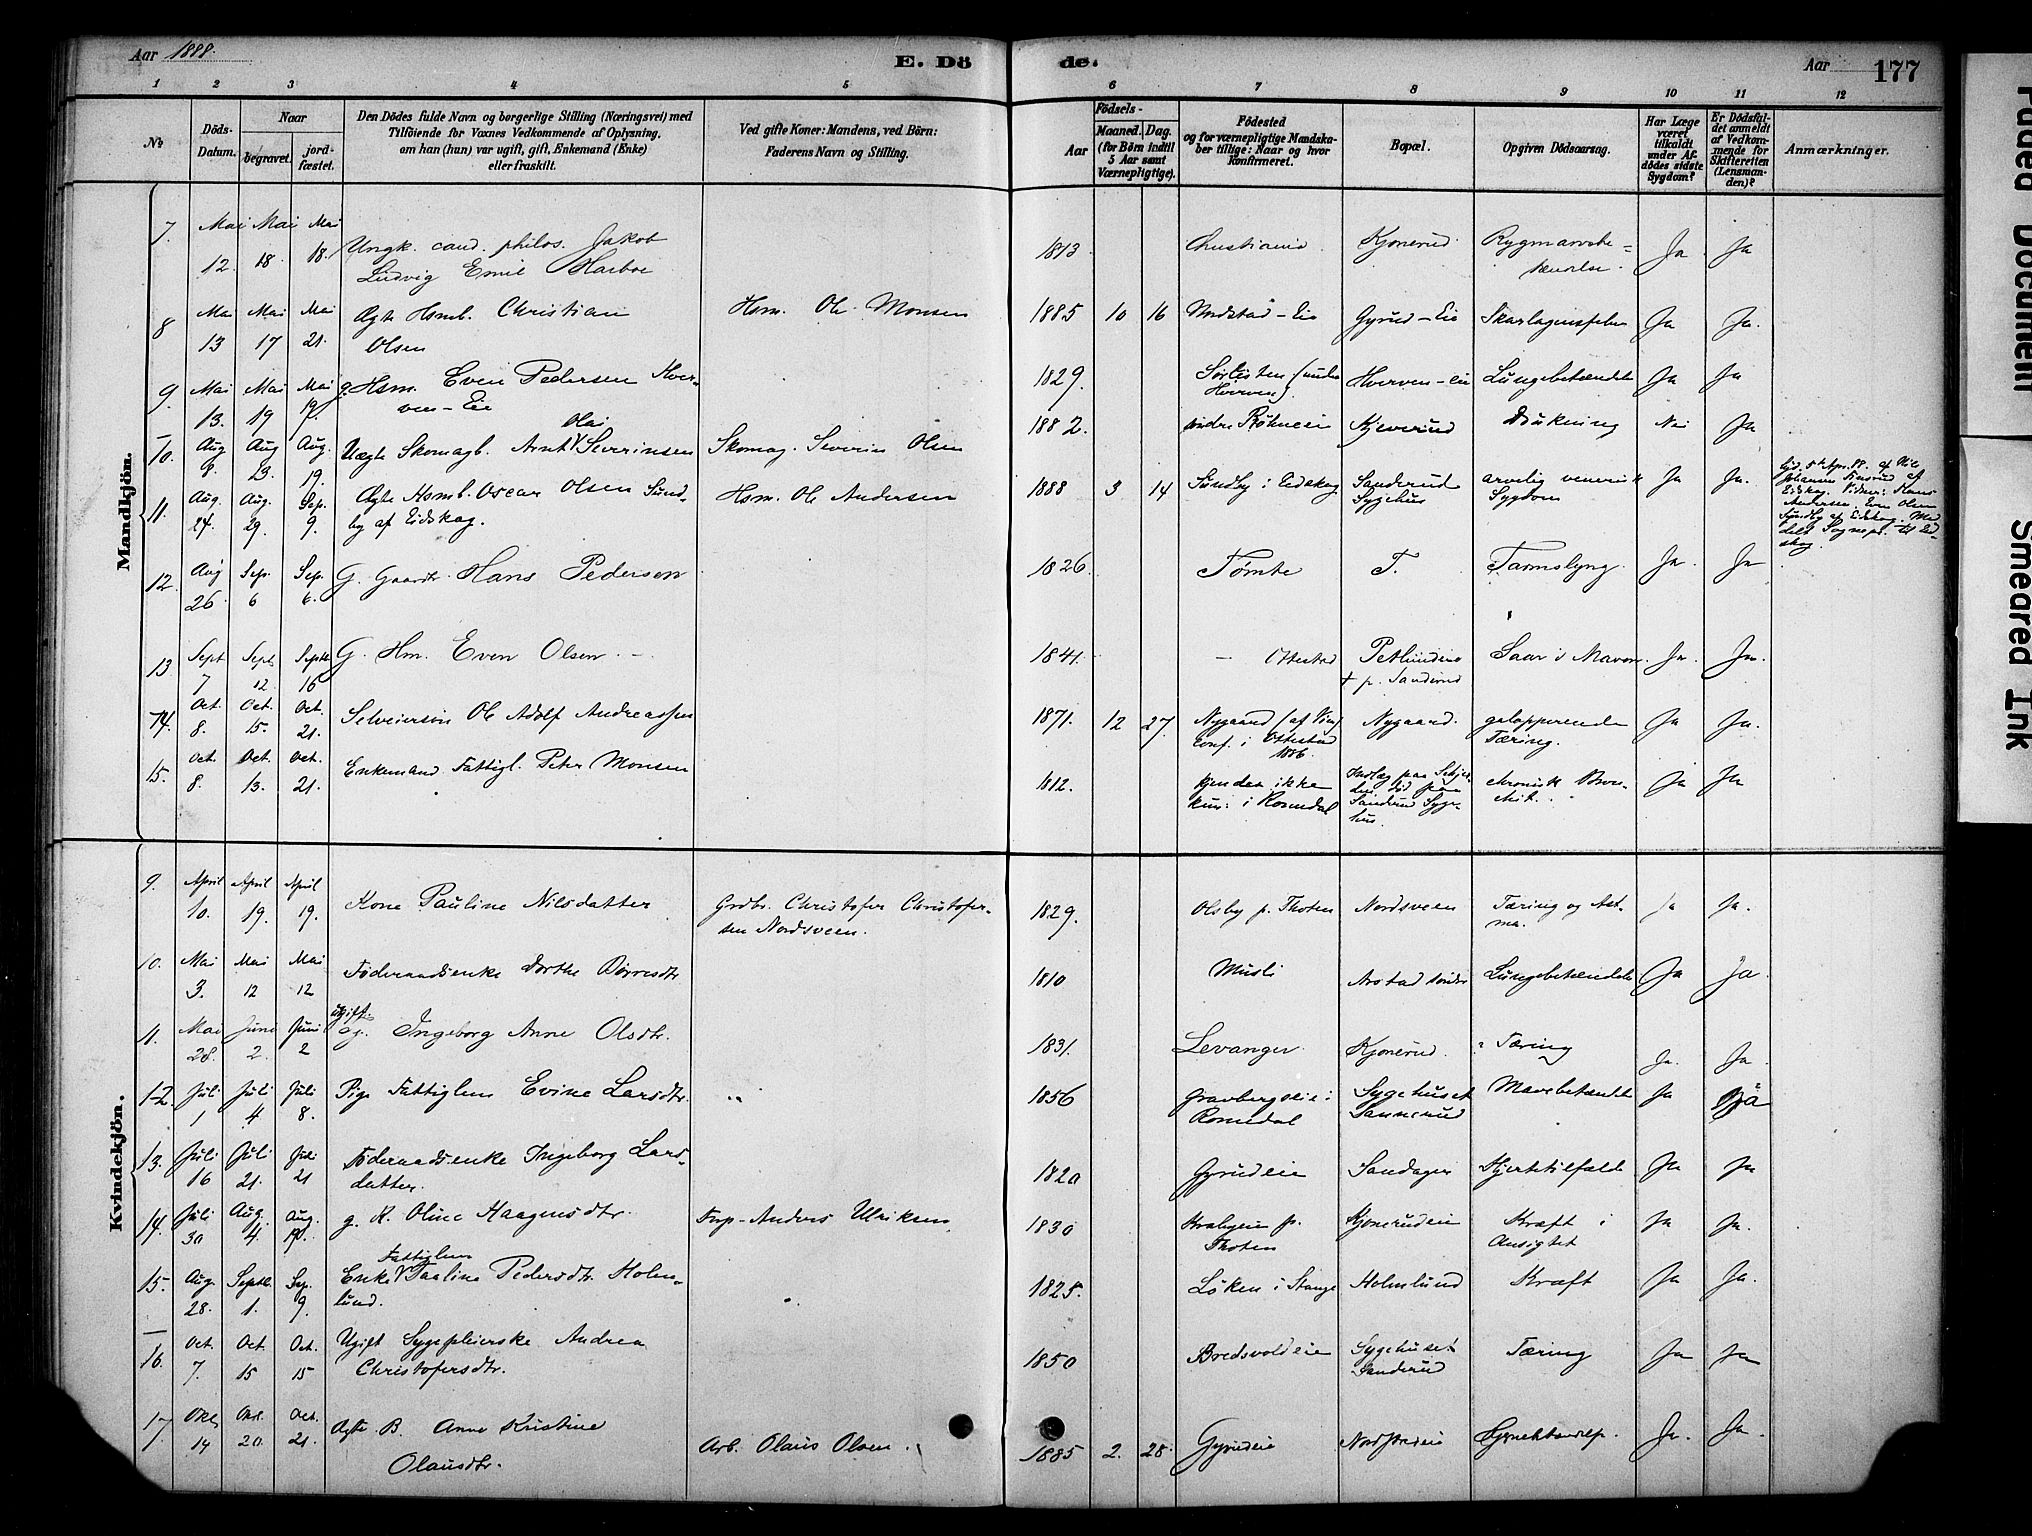 Aar 1888.
E. Dö de.
Aar 177
1 2 3 4 5 6 7 8 9 10 11 12
No
Döds-Datum.
Naar
begravet.
jord-fæstet.
Den Dödes fulde Navn og borgerlige Stilling (Næringsvei) med
Tilföiende for Vaxnes Vedkommende af Oplysning,
om han (hun) var ugift, gift, Enkemand (Enke)
eller fraskilt.
Ved gifte Koner: Mandens, ved Börn:
Faderens Navn og Stilling.
Födsels-
Aar
Maaned. Dag.
(for Börn indtil
5 Aar samt
Værnepligtige).
Födested
og for værnepligtige Mandska-
ber tillige: Naar og hvor
Konfirmeret.
Bopæl.
Opgiven Dödsaarsag.
Har Læge
været
tilkaldt
under Af-
dödes sidste
Sygdom?
Er Dödsfal-
det anmeldt
af Vedkom-
mende for
Skifteretten
(Lensman-
den)?
Anmærkninger.
Mandkjön.
7. Mai 12. Mai 18. Mai 18. Ungk. cand. philos. Jakob
Ludvig Emil Harboe
1813 Christiania Kjonerud Rygmarvsbe-
tændelse. Ja Ja
8 Mai 13 Mai 17 Mai 21. Ægte Hsmb. Christian
Olsen
Hsm. Ole Monsen 1885 10 16 Gyrud-Eie Ja Ja.
9. Mai 13. Mai 19 Mai g. Hsm. Even Pedersen Hver-
ven-Eie
1829. Hverven). Hverven-Eie Lungebetændelse Ja Ja
10. Aug 8. Aug 23. Aug. 19. Uægte Skomagb. Arnt Olai Severinsen Skomag. Severin Olsen 1882. Kjeverud Nei Ja
11. Aug. 24. Aug. 29. Sep. 9. Ægte Hsmb. Oscar Olsen Sund-
by af Eidskog.
Hsm. Ole Andersen 1888 3 14 Sundby i Eidskog Sanderud
Sygehus arvelig venerisk
Sygdom Ja Ja.
12. Aug 26. Sep. 6 Sep. 6. G. Gaardbr. Hans Pederson 1826. Tømte T. Tarmslyng. Ja. Ja
13 Sept 7 Sept. 12. Septb 16 G. Hm. Even Olsen. 1841. - Ottestad
† p. Sanderud Saar i Maven. Ja. Ja.
14. Oct. 8. Oct. 15. Oct. 21. Selveiersøn Ole Adolf Andreassen 1871. 12 27. Nygaard
Conf. i Ottestad
1886. Nygaard. galopperende
Tæring. Ja Ja.
15. Oct. 8. Oct. 13. Oct. 21. Enkemand Fattigl. Peter Monsen 1812. kjendes ikke
kun: i Romedal
Sanderud Syge-
hus. chronisk Bron-
chit. Ja Ja
Kvindekjön.
9. April 10. April 19. April 19. Kone Pauline Nilsdatter Grdbr. Christofer Christofer-
sen Nordsveen.
1829. Olsby p. Thoten Nordsveen Tæring og Ast-
ma. Ja Ja.
10. Mai 3. Mai 12 Mai 12 Føderaadsenke Dorthe 1810 Musli Arstad søndre Lungebetændelse Ja Ja
11. Mai 28. Juni 2. Juni 2 ugift Ingeborg Anne Olsdtr. 1831. Levanger Kjonerud. Tæring Ja. Ja.
12. Juli 1 Juli 4 Juli 8. Pige Fattiglem Evine Larsdtr. 1856 Gravbergseie i
Romedal Sygehuset
Sannerud Mavebetændelse Ja Ja
13. Juli 16 Juli 21. Juli 21 Føderaadsenke Ingeborg Lars-
datter.
1820 Gyrudeie Sandager Hjertetilfælde Ja Ja
14. Juli 30 Aug. 4 Aug. g. K. Oline Haagensdtr. Anders Ulriksen 1830
Thoten Kjonerudeie Kræft i
Ansigtet Ja Ja
15. Aug. 28. Septb. 1. Sep. 9. Enke Fattiglem Paaline Pedersdtr. Holm-
lund.
1825. Løken i Stange Holmlund Kræft Ja Ja.
16. Oct. 7. Oct 15 Oct. 15 Ugift Sygepleierske Andrea
Christofersdtr.
1850 Bredsvoldeie Sygehuset
Sanderud Tæring Ja Ja
17 Okt. 14 Okt. 20. Oct. 21. Ægte B. Anne Kristine
Olausdtr.
Arb. Olaus Olsen. 1885 2. 28. Gyrudeie Ja. Ja.
Faded Document
Smeared Ink